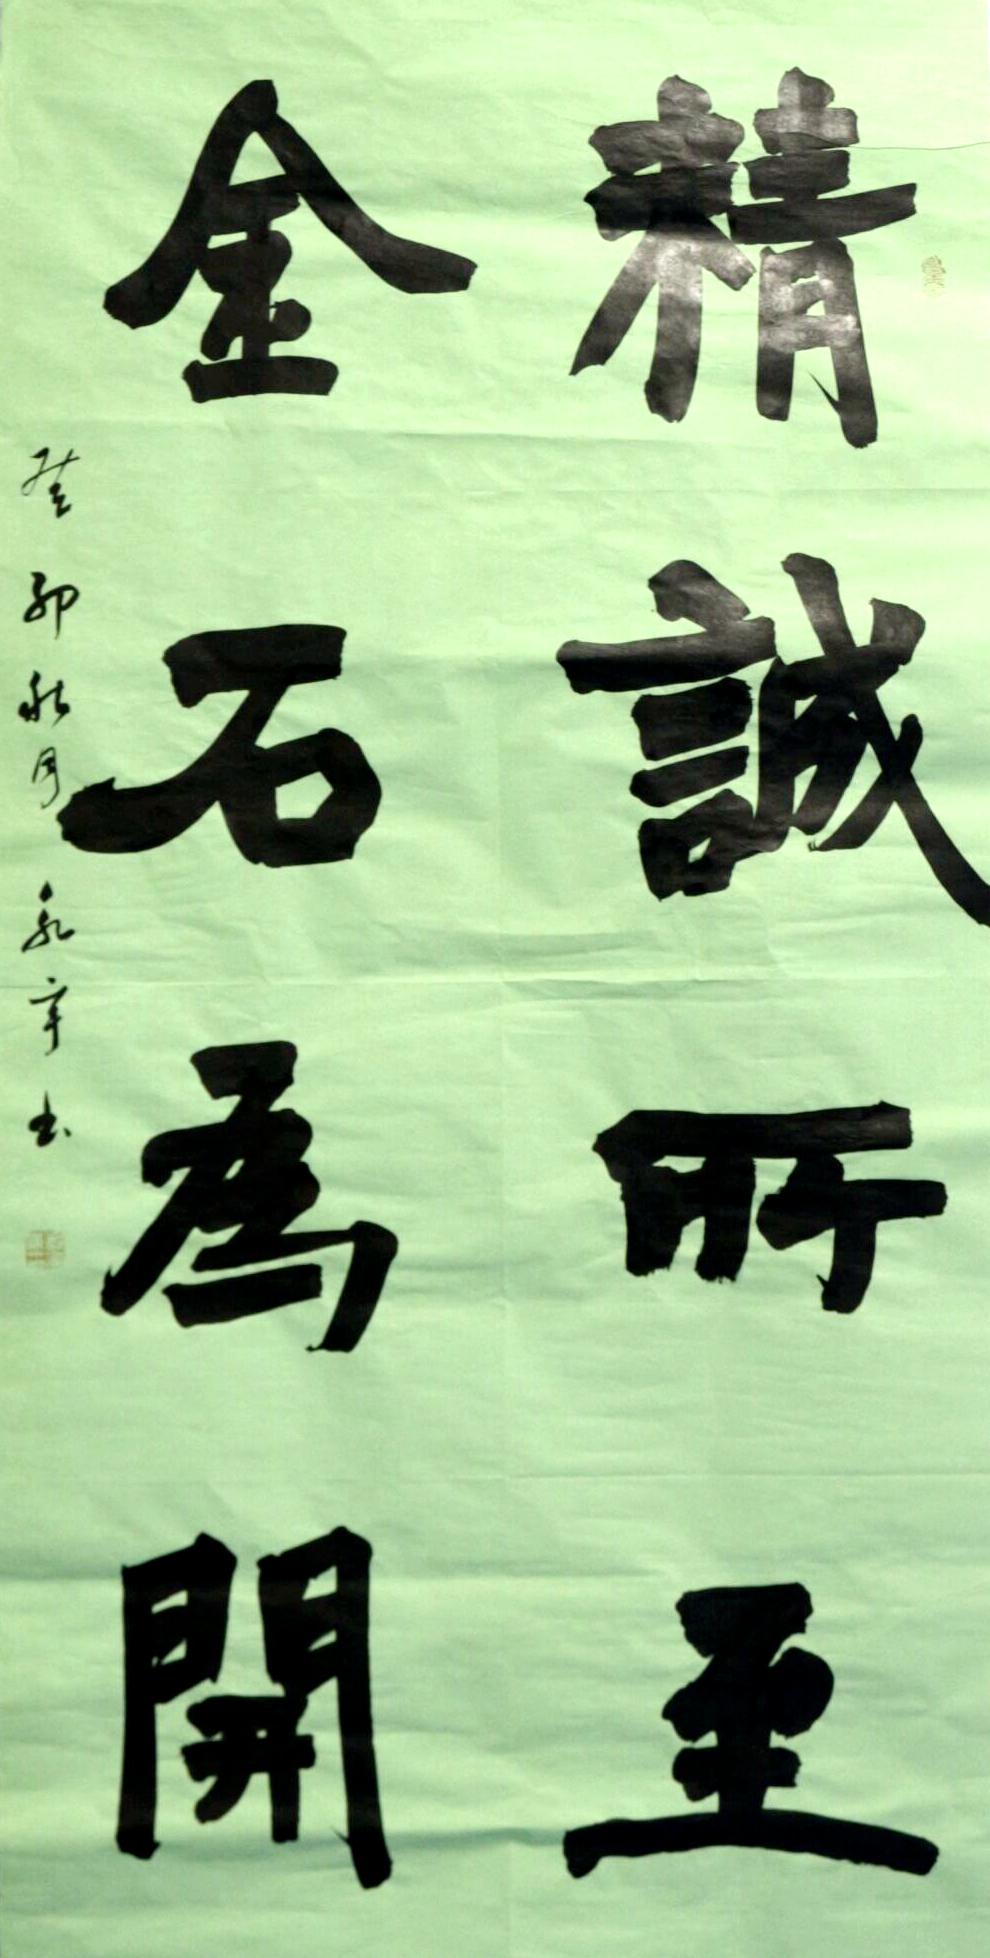 精誠所至
金石為開
癸卯秋月永辛书